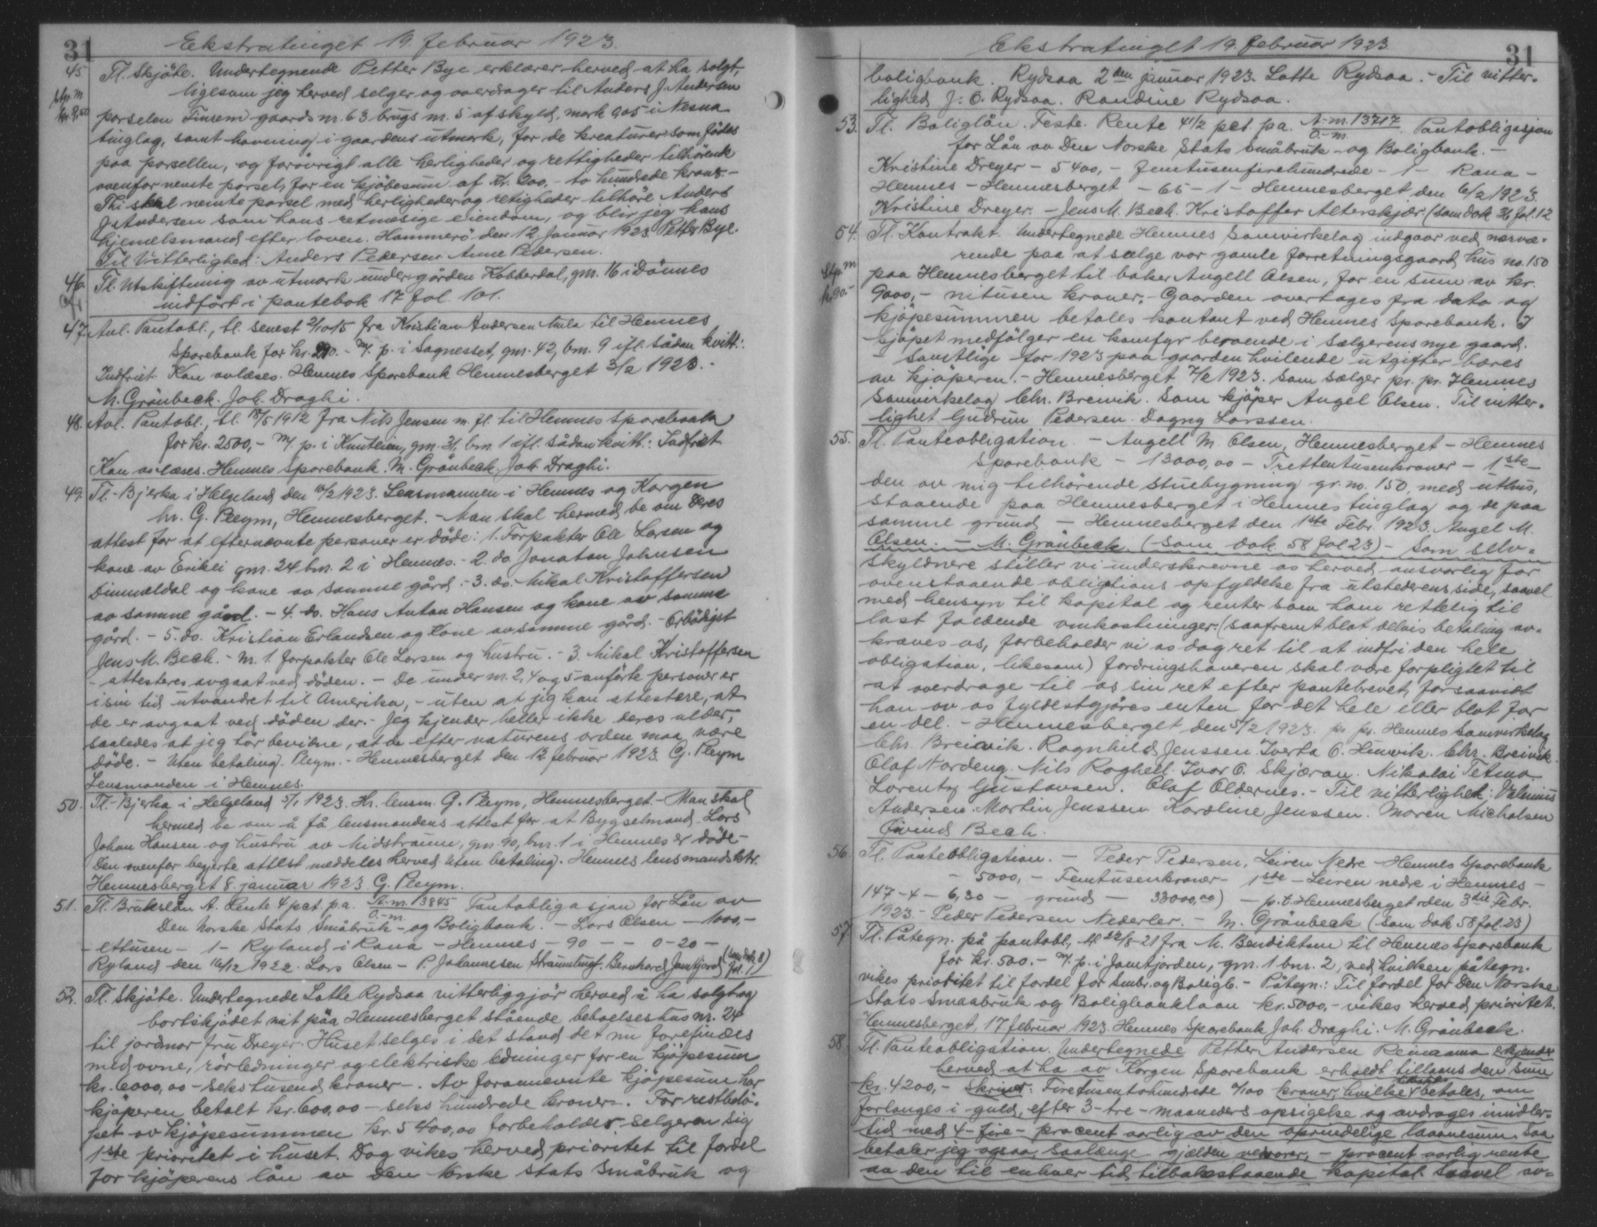 31
Ekstratinget 19 februar 1923.
45 Tl. Skjøte. Undertegnende Petter Bye erklærer herved at ha solgt,
ligesom jeg herved selger og overdrager til Anders J. Andersen
Stp. m
kr. 2.00
porselen Finsem gaards nr. 63 brugs nr. 5 af skyld, mark 0,05 i Nesna
tinglag, samt havning i gaardens utmark, for de kreaturer som födes
paa porsellen, og forövrigt alle herligheder og rettigheder tilhörende
ovenfor nevnte porsel, for en kjöbesum af Kr. 200,- to hundrede kroner. -
Thi skal nevnte porsel med herligheder og retigheder tilhöre Anders
J. Andersen som hans retmæsige eiendom, og blir jeg hans
hjemelsmand efter loven. Hammerö den 12 Januar 1923 Petter Bye.
Til Vitterlighed: Anders Pedersen Anne Pedersen.
46. Tl. Utskiftning av utmark under gården Kobberdal, gnr. 16 i Dönnes
indført i pantebok 17 fol 101.
47. Avl. Pantobl., tl. senest 2/10 15 fra Kristian Andersen Mula til Hemnes
Sparebank for kr. 290.- m/ p. i Sagnesset, gnr. 42, bnr. 9 ifl. sådan kvitt.:
Indfriet. Kan avlæses. Hemnes Sparebank Hemnesberget 3/2 1923. -
M. Grönbeck. Joh. Draghi.
48. Avl. Pantobl., tl. 17/5 1912 fra Nils Jensen m. fl. til Hemnes Sparebank
for kr. 2500,- m/ p. i gnr. 31, bnr. 1 ifl. sådan kvitt.: Indfriet
Kan avlæses. Hemnes Sparebank. M. Grönbeck. Joh. Draghi.
49. Tl. Bjerka i Helgeland den 10/2 1923. Lensmannen i Hemnes og Korgen
hr. G. Pleym, Hemnesberget. - Man skal hermed be om Deres
attest for at efternævnte personer er döde: 1. Forpakter Ole Larsen og
kone av gnr. 24 bnr. 2 i Hemnes. - 2. do Jonatan Johnsen
og kone av samme gård. - 3. do. Mikal Kristoffersen
av samme gård. - 4. do. Hans Antan Hansen og kone av samme
gård. - 5. do. Kristian Erlandsen og Kone av samme gård. - Erbödigst
Jens M. Bech. - nr. 1. forpakter Ole Larsen og hustru. - 3. Mikal Kristoffersen
- attesteres avgaat ved döden. - De under nr. 2, 4 og 5 anförte personer er
i sin tid utvandret til Amerika, - uten at jeg kan attestere, at
de er avgaat ved döden der. - Jeg kjender heller ikke deres alder,
saaledes at jeg tör bevitne, at de efter naturens orden maa være
döde. - Uten betaling. Pleym. - Hemnesberget den 12 februar 1923. G. Pleym
Lensmanden i Hemnes.
50. Tl. Bjerka i Helgeland 5/1 1923. Hr. lensm. G. Pleym, Hemnesberget. - Man skal
hermed be om å få lensmandens attest for at Bygselmand Lars
Johan Hansen og hustru av Midstraume, gnr. 90, bnr. 1 i Hemnes er döde -
Den ovenfor begjerte attest meddeles herved uten betaling. Hemnes lensmandsktr.
Hemnesberget 8. januar 1923 G. Pleym.
51. Tl. Brukslån A. Rente 4 pct pa. A-nr. 13845 Pantobligasjon for Lån av
O-nr.
Den Norske Stats Småbruk - og Boligbank. - Lars Olsen - 1000,-
- ettusen - 1 - Ryland i Rana - Hemnes - 90 - - 0-20 -
Ryland den 16/12 1922. Lars Olsen - P. Johannesen Bernhard Jamtjord
52. Tl. Skjøte. Undertegnede Lotte Rydsaa vitterliggjör herved å ha solgt og
bortskjødet mit påa Hemnesberget stående beboelseshus nr. 24
til jordmor fru Dreyer. Huset selges i det stand det nu forefindes
med ovne, rörledninger og elektriske ledninger for en kjöpesum
kr. 6000,00 - sekstusend kroner -. Av forannevnte kjöpesum har
kjöperen betalt kr. 600,00 - seks hundrede kroner. For restbelö-
pet av kjöpesummen kr. 5400,00 forbeholder selgeren sig
1ste prioritet i huset. Dog vikes herved prioritet til fordel
for kjöperens lån av Den norske Stats Småbruk og
Ekstratinget 19 februar 1923
31
boligbank. Rydsaa 2den januar 1923 Lotte Rydsaa. - Til vitter-
lighed J: O. Rydsaa. Randine Rydsaa.
53. Tl. Boliglån. Feste. Rente 4 1/2 pct pa. A-nr. 13717. Pantobligasjon
O-nr.
for Lån av Den Norske Stats Småbruk - og Boligbank. -
Kristine Dreyer - 5400,- femtusenfirehundrede - 1 - Rana -
Hemnes - Hemnesberget - 65 - 1 - Hemnesberget den 6/2 1923.
Kristine Dreyer. - Jens M. Bech. Kristoffer Alterskjær. (som dok 31, fol. 12
54. Tl. Kontrakt. Undertegnede Hemnes Samvirkelag indgaar ved nærvæ-
rende paa at sælge vor gamle forretningsgaard, hus no. 150
Stp. m
kr. 90.-
paa Hemnesberget til baker Angell Olsen, for en sum av kr.
9000,- nitusen kroner. - Gaarden overtages fra dato og
kjöpesummen betales kontant ved Hemnes Sparebank. I
kjöpet medfölger en komfyr beroende i sælgerens nye gaard.
- Samtlige for 1923 paa gaarden hvilende utgifter bæres
av kjöperen. - Hemnesberget 7/2 1923. som sælger pr. pr. Hemnes
Samvirkelag Chr. Breivik. Som kjöper Angel Olsen. Til vitter-
lighet Gudrun Pedersen. Dagny Larssen.
55. Tl. Panteobligation. - Angell M. Olsen, Hemnesberget - Hemnes
Sparebank - 13000,00 - Trettentusenkroner - 1ste -
den av mig tilhörende stuebygning gr. no. 150 med uthus,
staaende paa Hemnesberget i Hemnes tinglag og de paa
samme grund - Hemnesberget den 1ste Febr. 1923 Angel M.
Olsen. - M. Grönbeck. (som dok 58 fol 23) - Som selv-
skyldnere stiller vi underskrevne os herved ansvarlig for
ovenstaaende obligtions opfyldelse fra utstederens side, saavel
med hensyn til kapital og renter som ham rettelig til
last faldende omkostninger. (saafremt blot delvis betaling av-
kræves os, forbeholder vi os dog ret til at indfri den hele
obligation, likesom) fordringshaveren skal være forpligtet til
at overdrage til os sin ret efter pantebrevet forsaavidt
han av os fyldestgjöres enten for det hele eller blot for
en del. - Hemnesberget den 5/2 1923. p. pr. Hemnes Samvirkelag
Chr. Breivik. Ragnhild Jenssen. Iverta O. Heivik. Chr. Breivik
Olaf Nordeng. Nils Roghell. Ivar O. Skjæran. Nikolai Tetmo.
Lorentz Gustavsen. Olaf Oldernes. - Til vitterlighet:
Andersen. Martin Jenssen Karoline Jenssen. Maren Michalsen
Eivind Bech.
56. Tl. Panteobligation. - Peder Pedersen, Leiren Nedre - Hemnes Sparebank
- 5000,- Femtusenkroner - 1ste - Leiren nedre i Hemnes -
147 - 4 - 6,30 - grund - 33000,00) - p.t. Hemnesberget den 3die Febr.
1923 - Peder Pedersen Nederler. - M. Grönbeck (som dok 58 fol 23)
57. Tl. Påtegn. på pantobl. tl. 22/8-21 fra M. Bendiktsen til Hemnes Sparebank
for kr. 500.- m/ p. i Jamtjorden, gnr. 1 bnr. 2, ved hvilken påtegn.
vikes prioritet til fordel for Smbr. og Boligb. - Påtegn.: Til fordel for Den Norske
Stats Smaabruk og Boligbanklaan kr. 5000,- vikes herved prioritet.
Hemnesberget, 17 februar 1923. Hemnes Sparebank Joh. Draghi. M. Grönbeck.
58. Tl. Panteobligation. Undertegnede Petter Andersen erkjender
herved at ha av Korgen Sparebank erholdt tillaans den sum
kr. 4200,- skriver: Firetusentohundrede 0/100 kroner, hvilke betales, om
forlanges i guld, efter 3 - tre - maaneders opsigelse og avdrages imidler-
tid med 4 - fire - procent aarlig av den oprindelige laanesum. Saa
betaler jeg ogsaa, saalænge gjælden vedvarer, - procent aarlig rente
av den til enhver tid tilbakestaaende kapital. Saavel av-